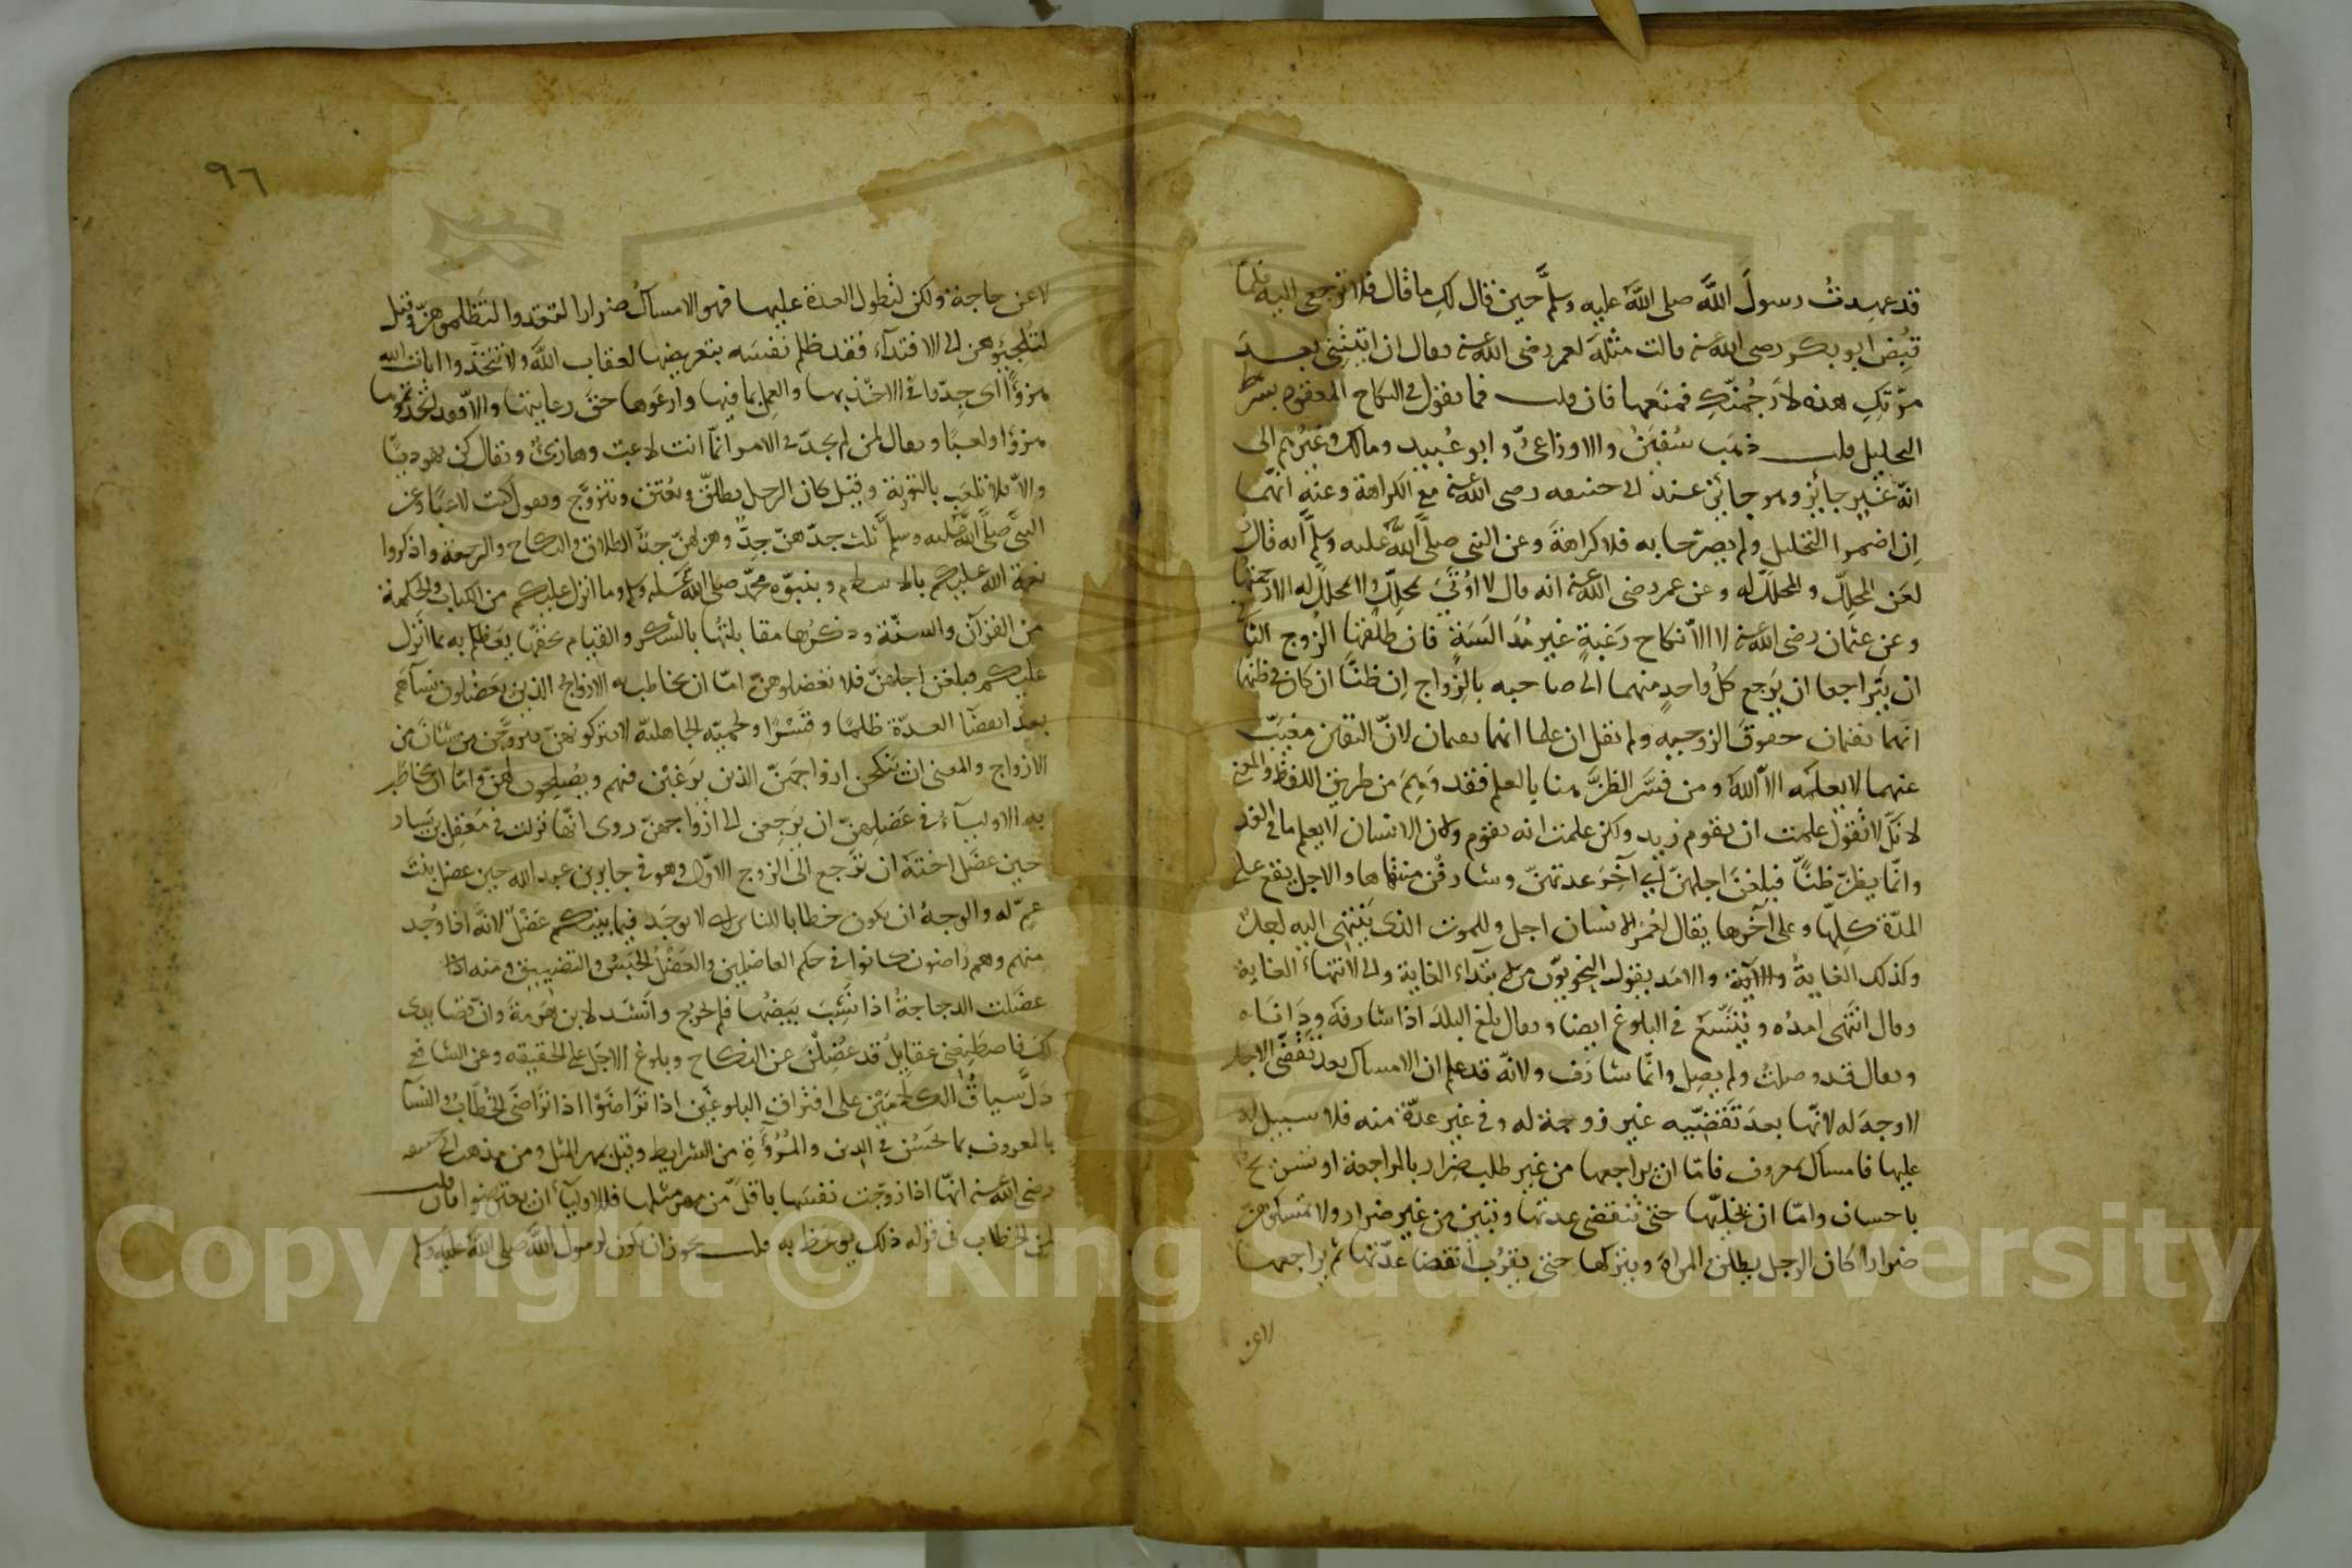 قد عهدتُ رسولَ اللَّه صلى اللَّه عليه وسلَّم حين قال لكِ ما قال فلا ترجعى اليه فلمّا
قُبِض ابو بكر رضى اللّه عنه قالت مثلَه لعمر رضى اللّه عنه فقال ان اتيتِنِى بعدَ
مرّتكِ هذه لاَرجُمنّكِ فمنَعها فان قلت فما تقول فى النكاح المعقود بشرط
التحليل قلت ذهَب سُفينُ والاوزاعىُّ وابو عُبيد ومالك وغيرُهم الى
انّه غير جائز وهو جائز عند ابى حنيفه رضى اللّه عنه مع الكراهة وعنه انّهما
اِن اضمرا التحليل ولم يصرّحا به فلا كراهةَ وعن النبى صلى اللَّه عليه وسلَّم انه قال
لعَن المحلِّل والمحلَّل له وعن عمر رضى اللّه عنه انه قال لا اُوتَى بمحلِّل ولا محلَّل له الا رجمتُهما
وعن عثمان رضى اللّه عنه لا الاّ نكاح رَغبةٍ غير مُدَالَسَةٍ فان طلّقها الزوج الثانى
ان يتراجعا ان يرجع كلُّ واحدٍ منهما الى صاحبه بالزواج اِن ظنّا ان كان فى ظنّهما
انّهما يقيمان حقوق الزوجيه ولم يقل ان علما انهما يقيمان لانّ اليقين مغيَّبٌ
عنهما لا يعلمه الاّ اللّه ومن فسَّر الظنَّ هنا بالعلم فقد وَهِمَ من طريق اللفظ والمعنى
لانّك لا تقول علمت ان يقوم زيد ولكن علمت انه يقوم ولان الانسان لا يعلم ما فى الغد
وانّما يظنّ ظنًّا فبلغنَ اجلهنّ اى آخِرَ عدتهنّ وشارفْن منتهاها والاجل يقع على
المدّة كلِّها وعلى آخرها يقال لعُمر الانسان اجل وللموت الذى يَنتهى اليه اجلٌ
وكذلك الغايةُ والامَد يقول النحويّون من لابتداء الغاية والى لانتهاء الغاية
وقال انتهى امدُه ويُتّسَعُ فى البلوغ ايضا ويقال بلغ البلدَ اذا شارفَه ودَاناه
ويقال قد وصلتُ ولم يصِل وانّما شارَف ولانّه قد علم ان الامساك بعد تَقضّى الاجل
لا وجهَ له لانّها بعدَ تَقضّيه غير زوجة له وفى غير عدّة منه فلا سبيل له
عليها فامساك بمعروف فامّا ان يراجعها من غير طلب ضِرار بالمراجعة او تسريح
باحسان وامّا ان يخلّيها حتى تنقضى عدتها وتبين من غير ضرار ولا تمسكوهنّ
ضرارا كان الرجل يطلق المراة ويتركها حتى يقرُب انقضا عدّتها ثم يراجعها
لاعن
٩٦
لا عن حاجة ولكن لتطول العدة عليها فهو الامساكُ ضرارا لتعتدوا لتظلموهنّ وقيل
لتُلجِئوهن الى الافتدآء فقد ظلم نفسَه بتعريضها لعقاب اللّه ولا تتخذوا ايات اللّه
هزوًا اى جِدّوا فى الاخذ بها والعمل بما فيها وارعَوها حقَّ رعايتها والاّ فقد اتخذتموها
هزوًا ولعبًا ويقال لمن لم يجدّ فى الامر انّما انت لاعبٌ وهازئٌ ويقال كن يهوديًا
والاّ فلا تلعَب بالتورية وقيل كان الرجل يطلّق ويُعتق ويتزوّج ويقول كنت لاعبًا وعن
النبىّ صلى اللَّه عليه وسلَّم ثلث جدّهنّ جِدٌّ وهزلهنّ جدٌّ الطلاق والنكاح والرجعة واذكروا
نعمة اللّه عليكم بالاسلام وبنبوّه محمّد صلى اللّه عليه وسلم وما انزل عليكم من الكتاب والحكمة
من القرآن والسنّة وذكرُها مقابلتها بالشكر والقيام بحقّها يعظكم به بما انزل
عليكم فبلغن اجلهنّ فلا تعضلوهنّ امّا ان يخاطب به الازواج الذين يَعضُلون نساءهم
بعد انقضآ العدّة ظلمًا وقَسْرًا ولحميّه الجاهليّة لا يتركونهنّ يتزوّجن من شئن من
الازواج والمعنى ان ينكحن ازواجَهنّ الذين يرغبْن فيهم ويصلحون لهنّ وامّا ان يخاطَب
به الاوليآءُ فى عَضلِهنّ ان يَرجِعن الى ازواجهنّ روى انّها نزلت فى مَعقِل بن يَسار
حين عضَل اختَه ان ترجع الى الزوج الاوّل وقيل فى جابر بن عبد اللّه حين عضل بنتَ
عمّ له والوجهُ ان يكون خطابا للناس اى لا يوجَد فيما بينكم عَضْلٌ لانّه اذا وُجد
منهم وهم راضون كانوا فى حكم العاضلين والعَضْلُ الحَبسُ والتضييق ومنه
عضَلت الدجاجةُ اذا نَشِبَ بَيضُها فلم يَخرج وانشَد لابن هَرْمةَ وانّ قصايدى
لكَ فاصطنِعْنى عقايلُ قد عُضِلْنَ عن النكاح وبلوغ الاجل على الحقيقه وعن الشافعى
دَلَّ سياقُ الكلامَيْن على افتراق البلوغَين اذا تَراضَوْا اذا تراضَى الخُطّابُ والنسآ
بالمعروف بما يحسُن فى الدين والمُرُوَّةِ من الشرايط وقيل بمهر المثل ومن مذهب ابى حنيفه
رضى اللّه عنه انّها اذا زوّجت نفسَها باقلَّ من مهر مثلها فللاوليآء ان يعترضوا فان قلت
لمن الخطاب فى قوله ذلك يوعَظ به قلت يجوز ان يكون لرسول اللّه صلى اللَّه عليه وسلم